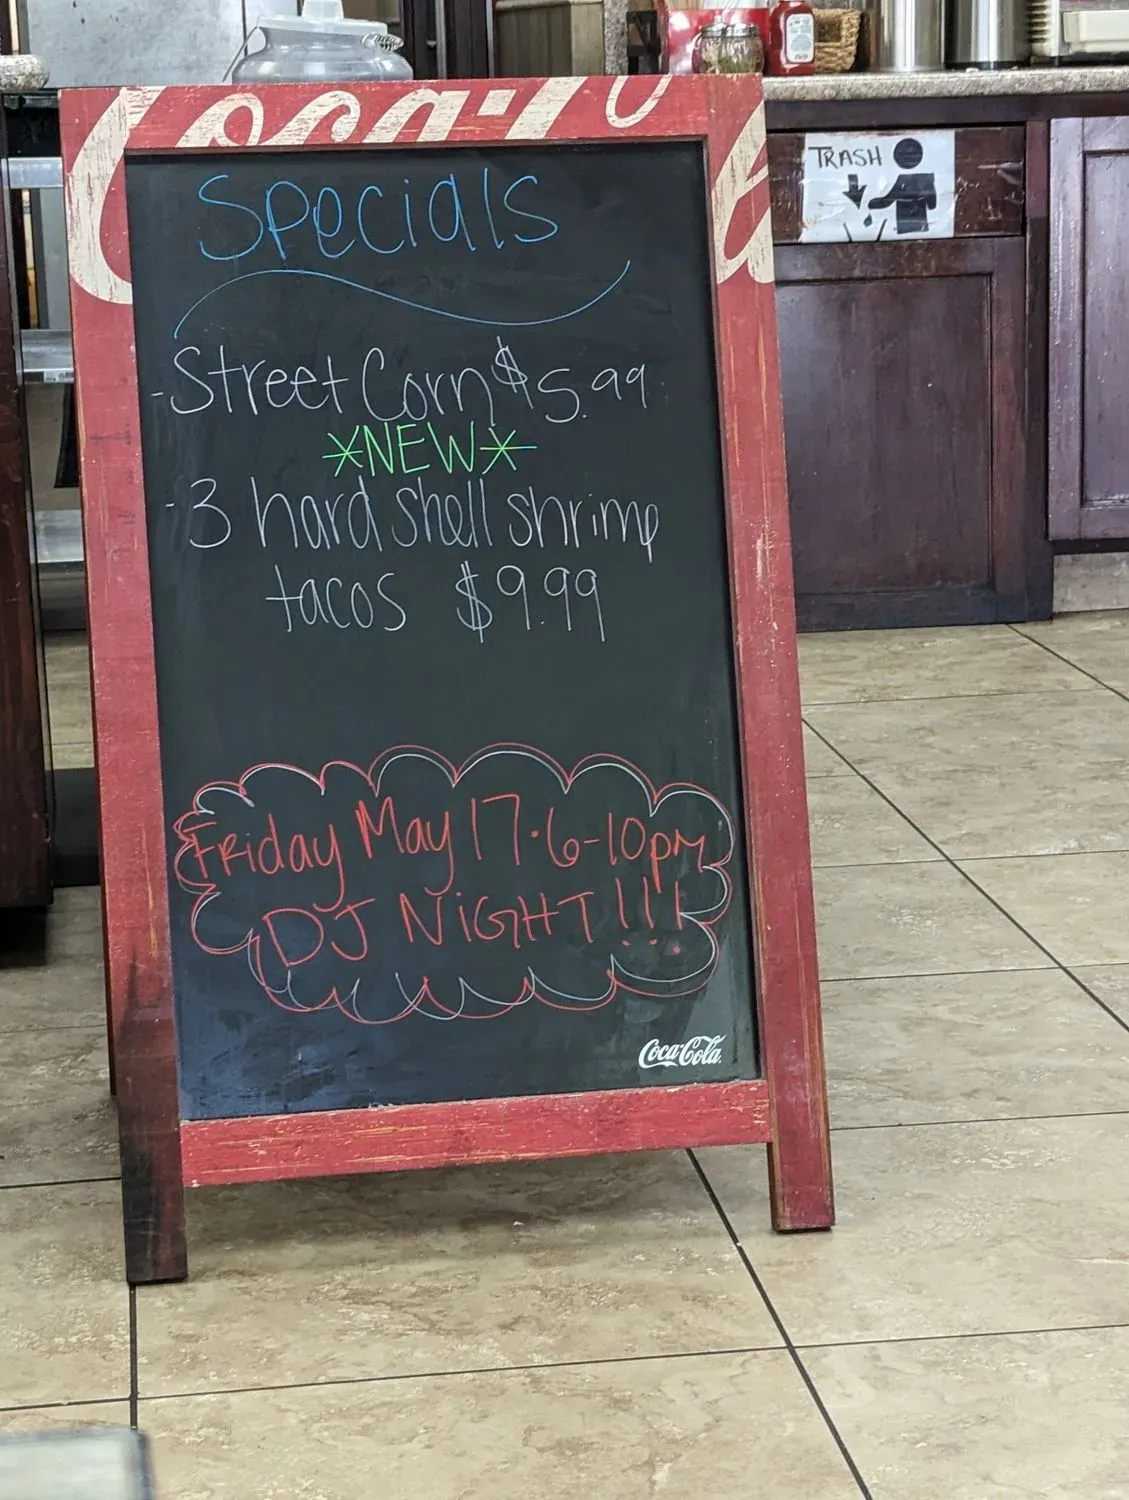 Coca-Co
TRASH
Specials
-Street Corn $5.99
*NEW*
-3 hard shell shrimp
tacos $9.99
Friday May 17·6-10pm
DJ NiGHT!!!
Coca-Cola